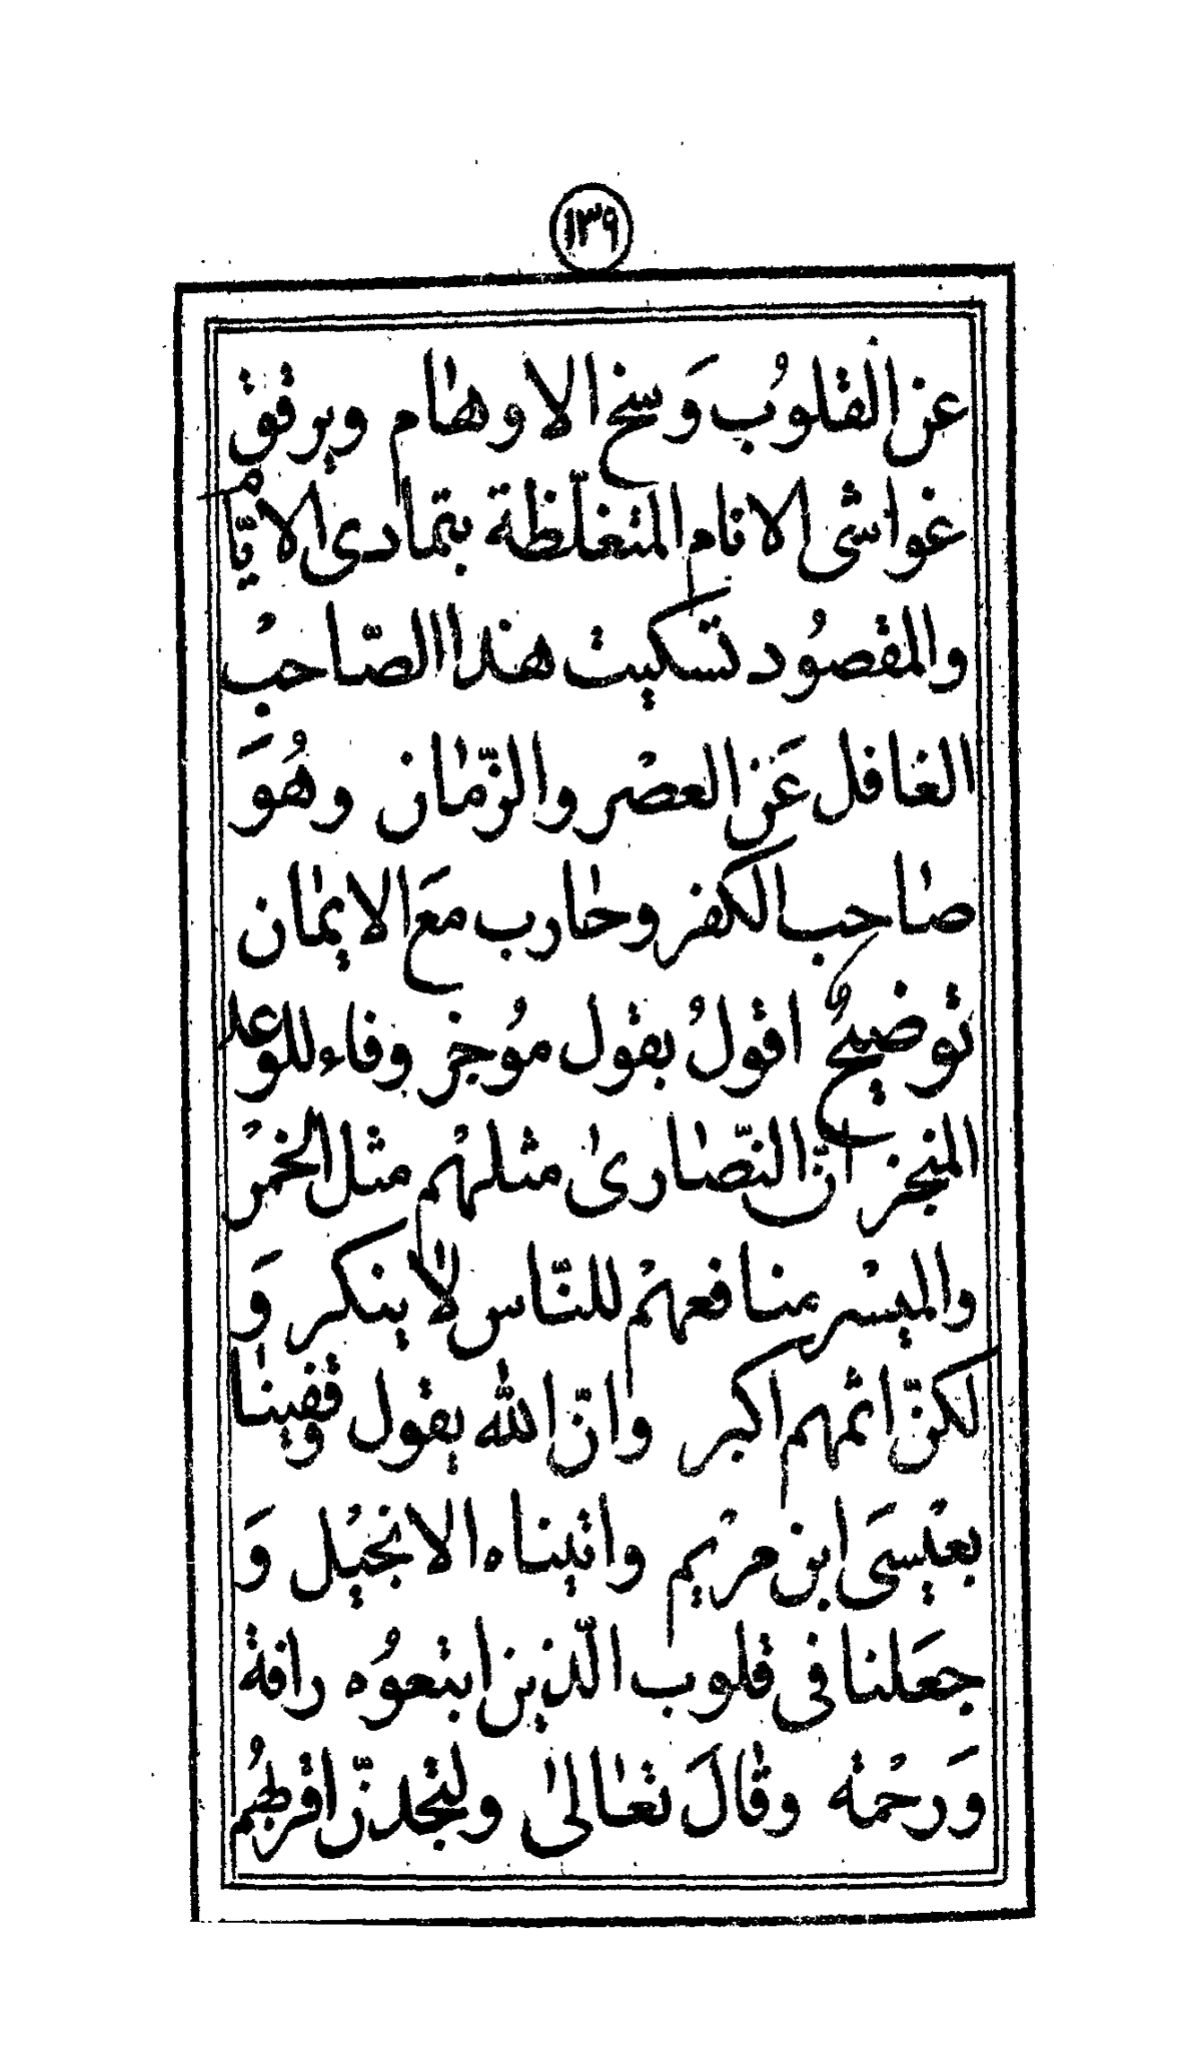 ١٣٩
عن القلوبُ وَسخ الاوهٰام ويرقق
غواشى الانام المتغلّظة بتمادى الايّام
والمقصُود تسكيت هذا الصّاحبْ
الغافل عَن العصْر والزّمٰان وهُوَ
صٰاحب الكفر وحٰارب مَع الايمٰان
توضيحٌ اقولُ بقول مُوجز وفاء للوعد
المنجز انّ النّصٰارىٰ مثلهْم مثل الخمْر
والميسْر منافعهمْ للنّاس لاٰ ينكر وَ
لكنّ اثمهم اكبر وانّ الله يقول وقفينٰا
بعيْسَى ابن مرْيم واتيناه الانجيْل وَ
جعَلنا فى قلوب الّذين ابتعوُه رافة
وَرحْمة وقٰالَ تعٰالىٰ ولتجدنّ اقربهُم